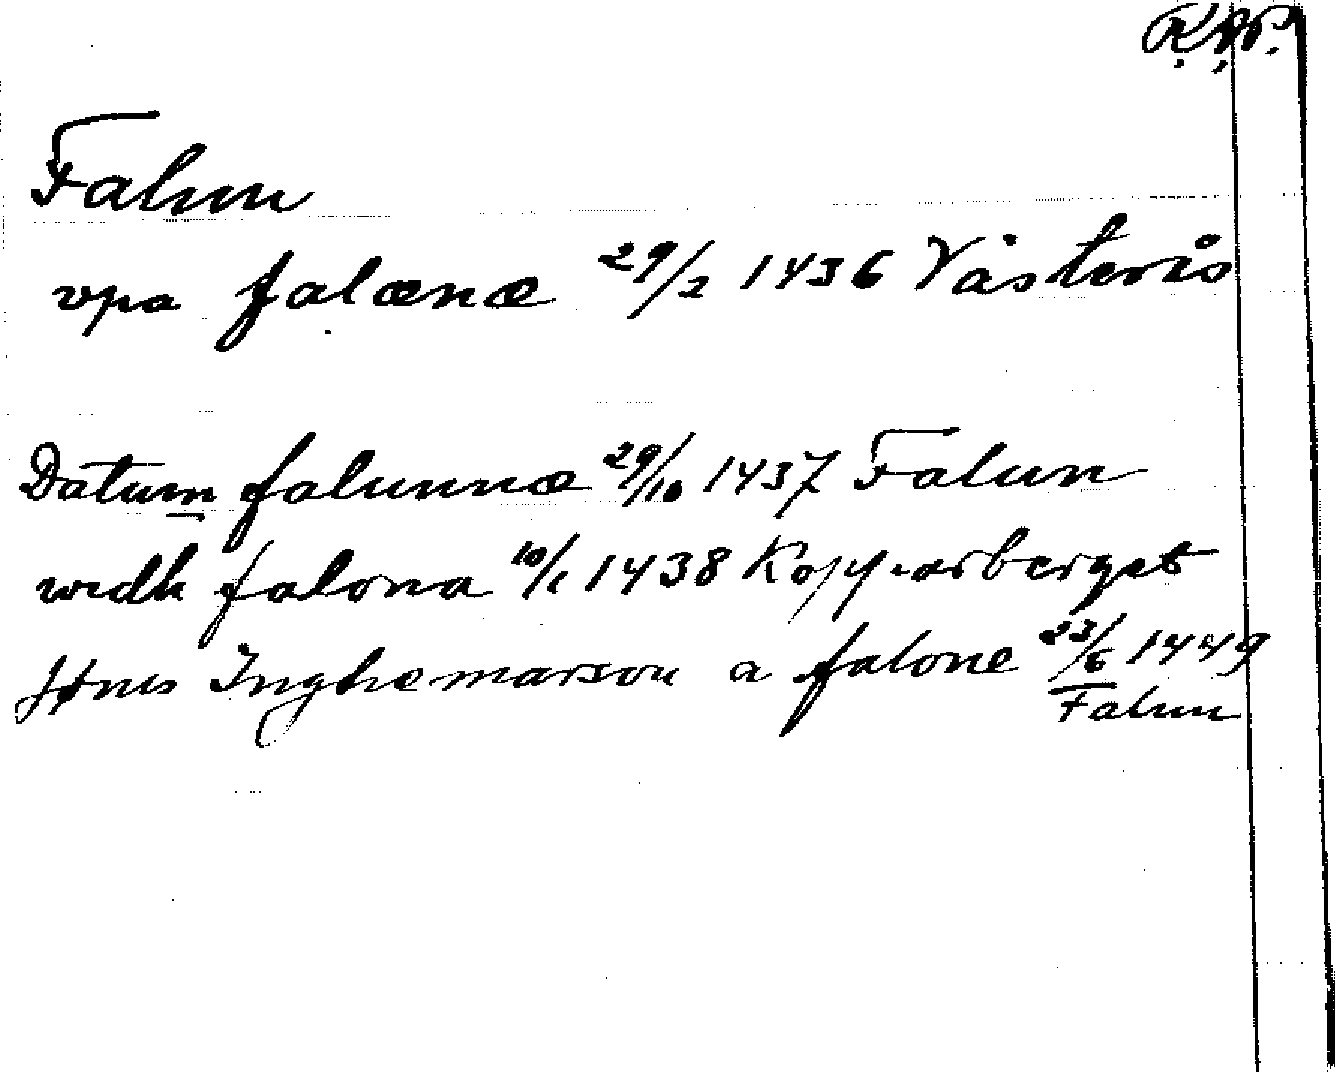 R.A.P.
Falun
vpa falænæ 29/2 1436 Västerås
Datum falunnæ 29/10 1437 Falun
widh falona 10/1 1438 Kopparberget
Jønis Inghemarson a falone 23/6 1449
Falun